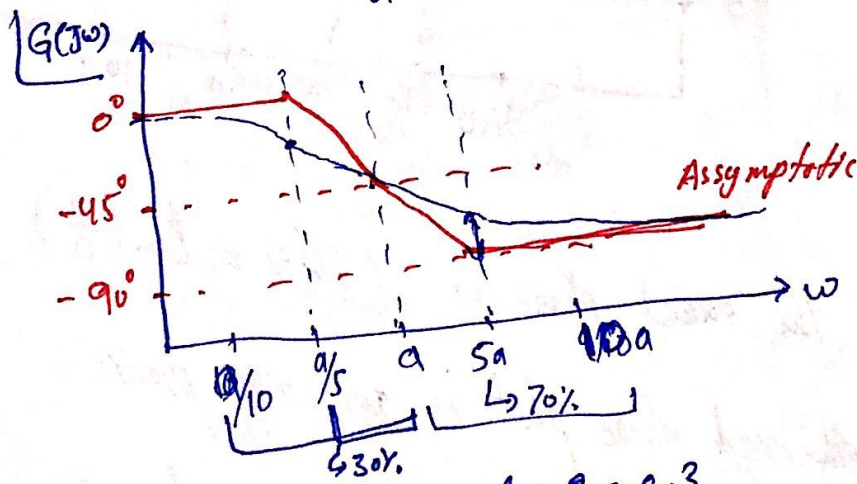 G(Jω)
0°
-45°
-90°
Assymptotic
ω
/10
a/5
a
5a
a
↳ 70%
↳ 30%